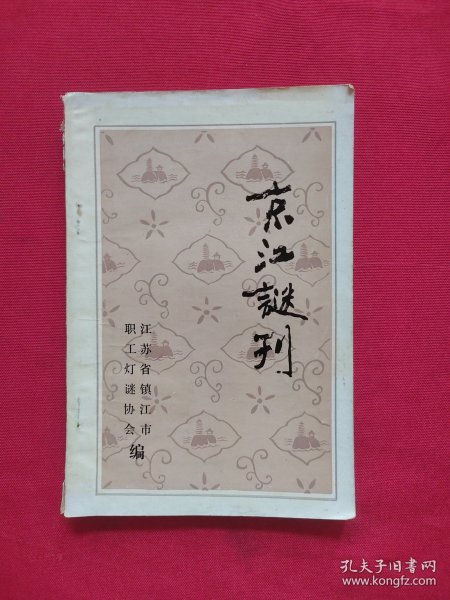 京江謎刊
江苏省镇江市
职工灯谜协会
编
孔夫子旧书网
www.kongfz.com